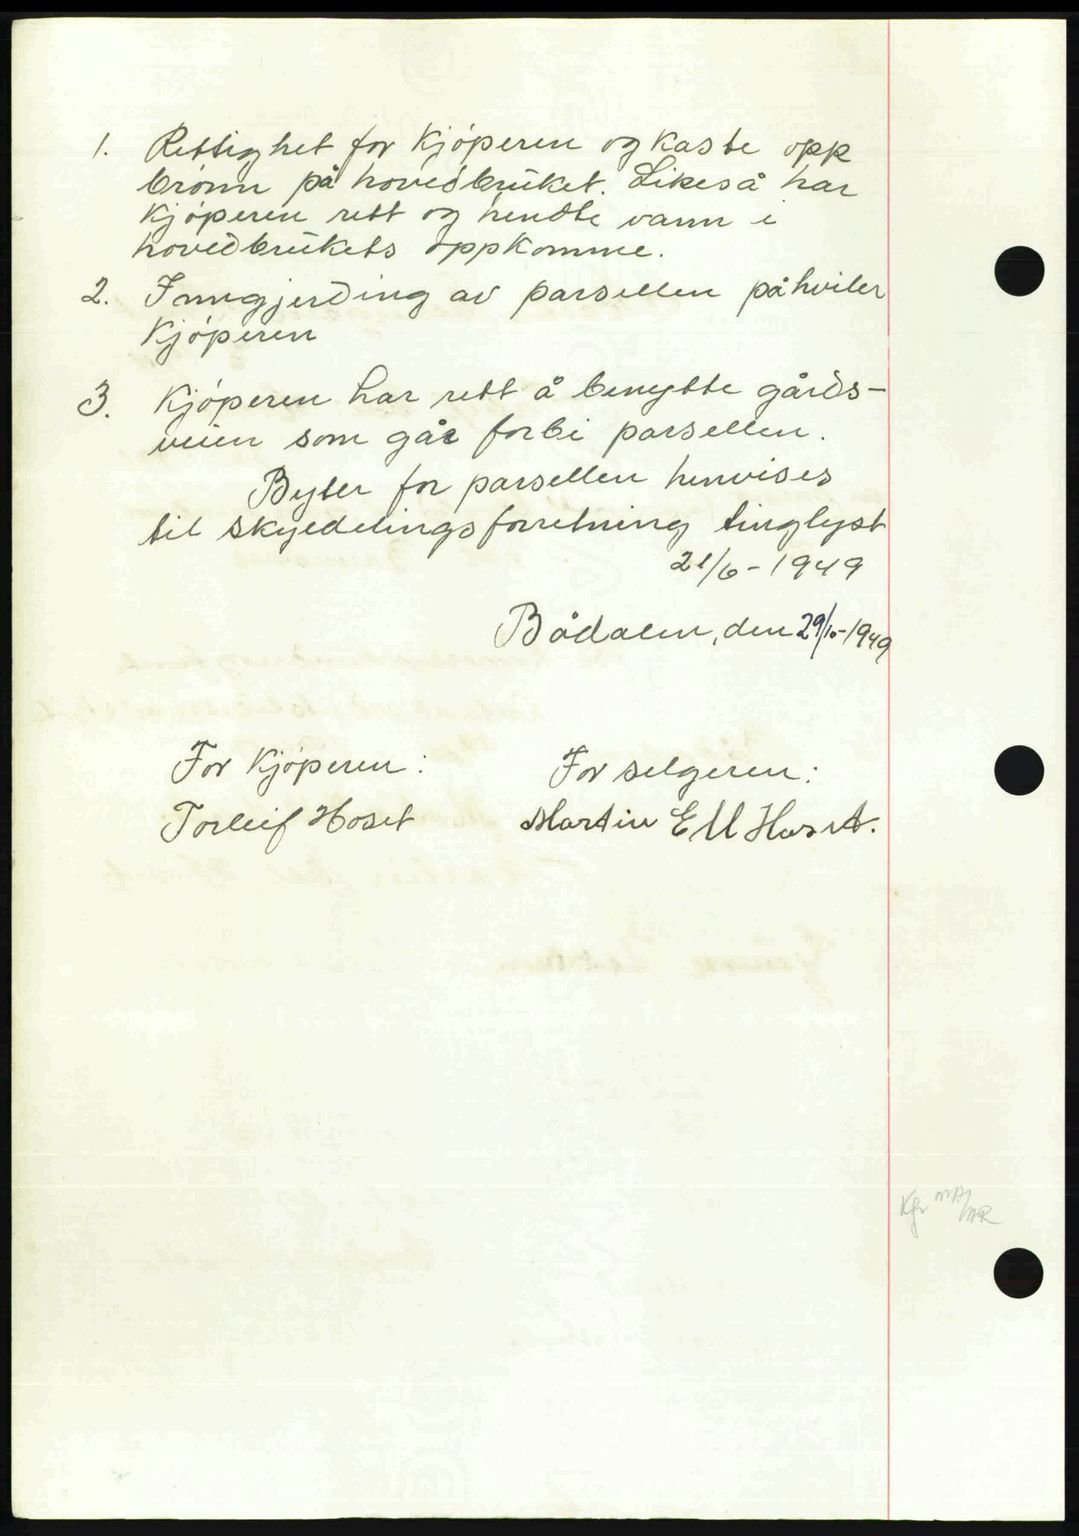 1. Rettighet for Kjøperen og kaste opp
brønn på hovedbruket. Likeså har
Kjøperen rett og hendte vann i
hovedbrukets oppkomme.
2. Inngjerding av parsellen påhviler
Kjøperen
3. Kjøperen har rett å benytte gårds-
veien som går forbi parsellen.
Byter for parsellen henvises
til skyldelingsforretning tinglyst
21/6-1949
Bådalen, den 29/10-1949
For Kjøperen: For selgeren:
Torleif Hoset Martin E M Hoset.
Kfr